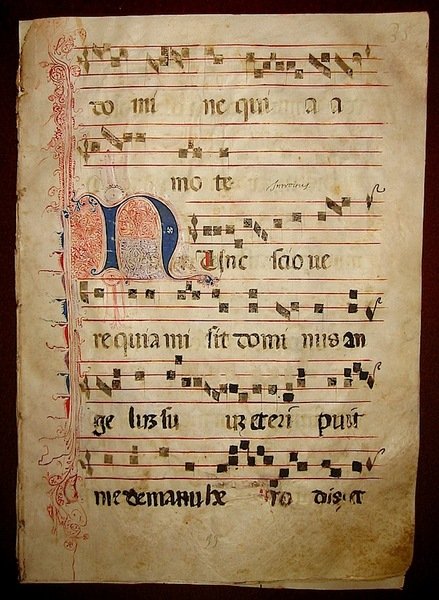 35
do mi ne qui a a
mo te
Nunc scio ve
re quia mi sit domi nus an
ge lum su um et eri puit
me de manu he ro dis et